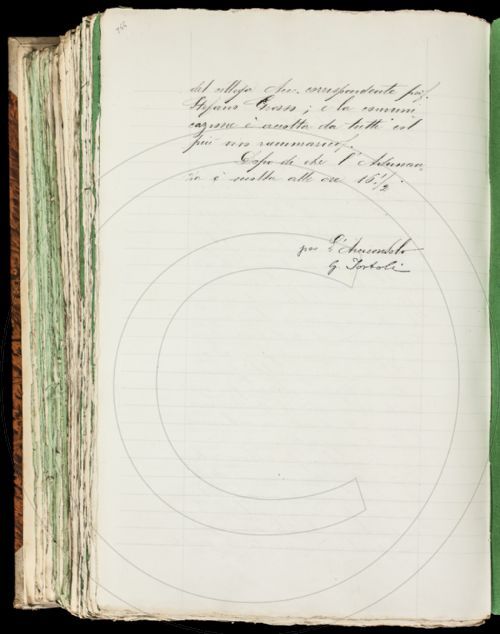 del collega Acc. corrispondente prof.
Stefano Grosso; e la comuni
cazione è accolta da tutti col
più vivo rammarico.
Dopo di che l'Adunan-
za è sciolta alle ore 15 1/2
per l'Arciconsolo
G. Tortoli